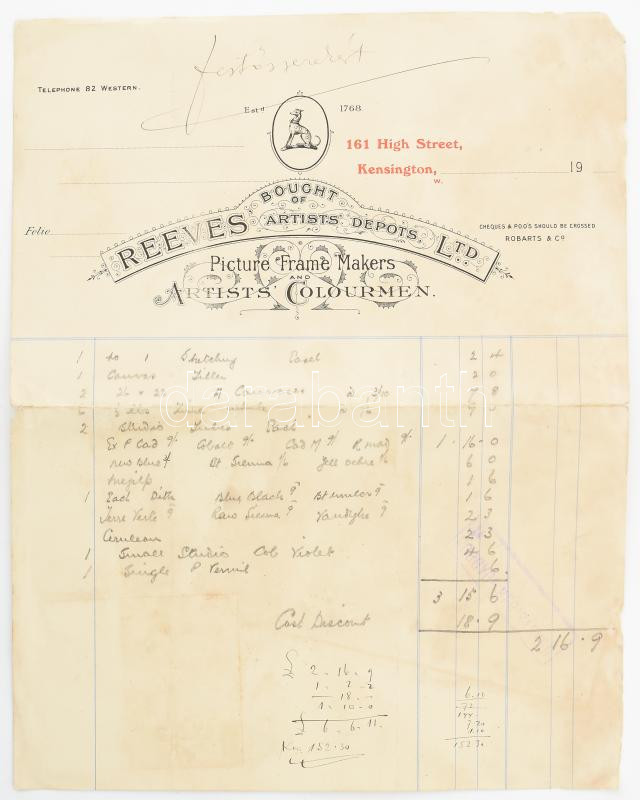 festőszerekért
TELEPHONE 82 WESTERN.
Estd 1768
161 High Street,
Kensington, 19
W.
BOUGHT
OF
Folio
REEVES' ARTISTS' DEPOTS, LTD.
CHEQUES & P.O.O'S SHOULD BE CROSSED
ROBARTS & CO
Picture Frame Makers
AND
ARTISTS' COLOURMEN.
1 No 1 Sketching Easel 2 4
1 Canvas 2 0
2 A Canvases 2/10 7 8
6
2 Studio Tubes Each
Ex P Cad Cobalt Cad R mad 1 16 0
New Blue Bt Sienna Yell ochre 6 0
Megilp 1 6
1 Each Ditto Blue Black Bt umber 1 6
Terre Verte Raw Sienna Vandyke 2 3
Ceruleum 2 3
1 Small Studio Cob Violet 4 6
1 Single P Vermil 6
3 15 6
Cash Discount 18 9
2 16 9
£ 2 - 16 - 9
1 - 2 - 2
18 -
1 - 10 - 0
£ 6 - 6 - 11
152.30
6.11
72
144
7.20
1.10
152 30
darabanth